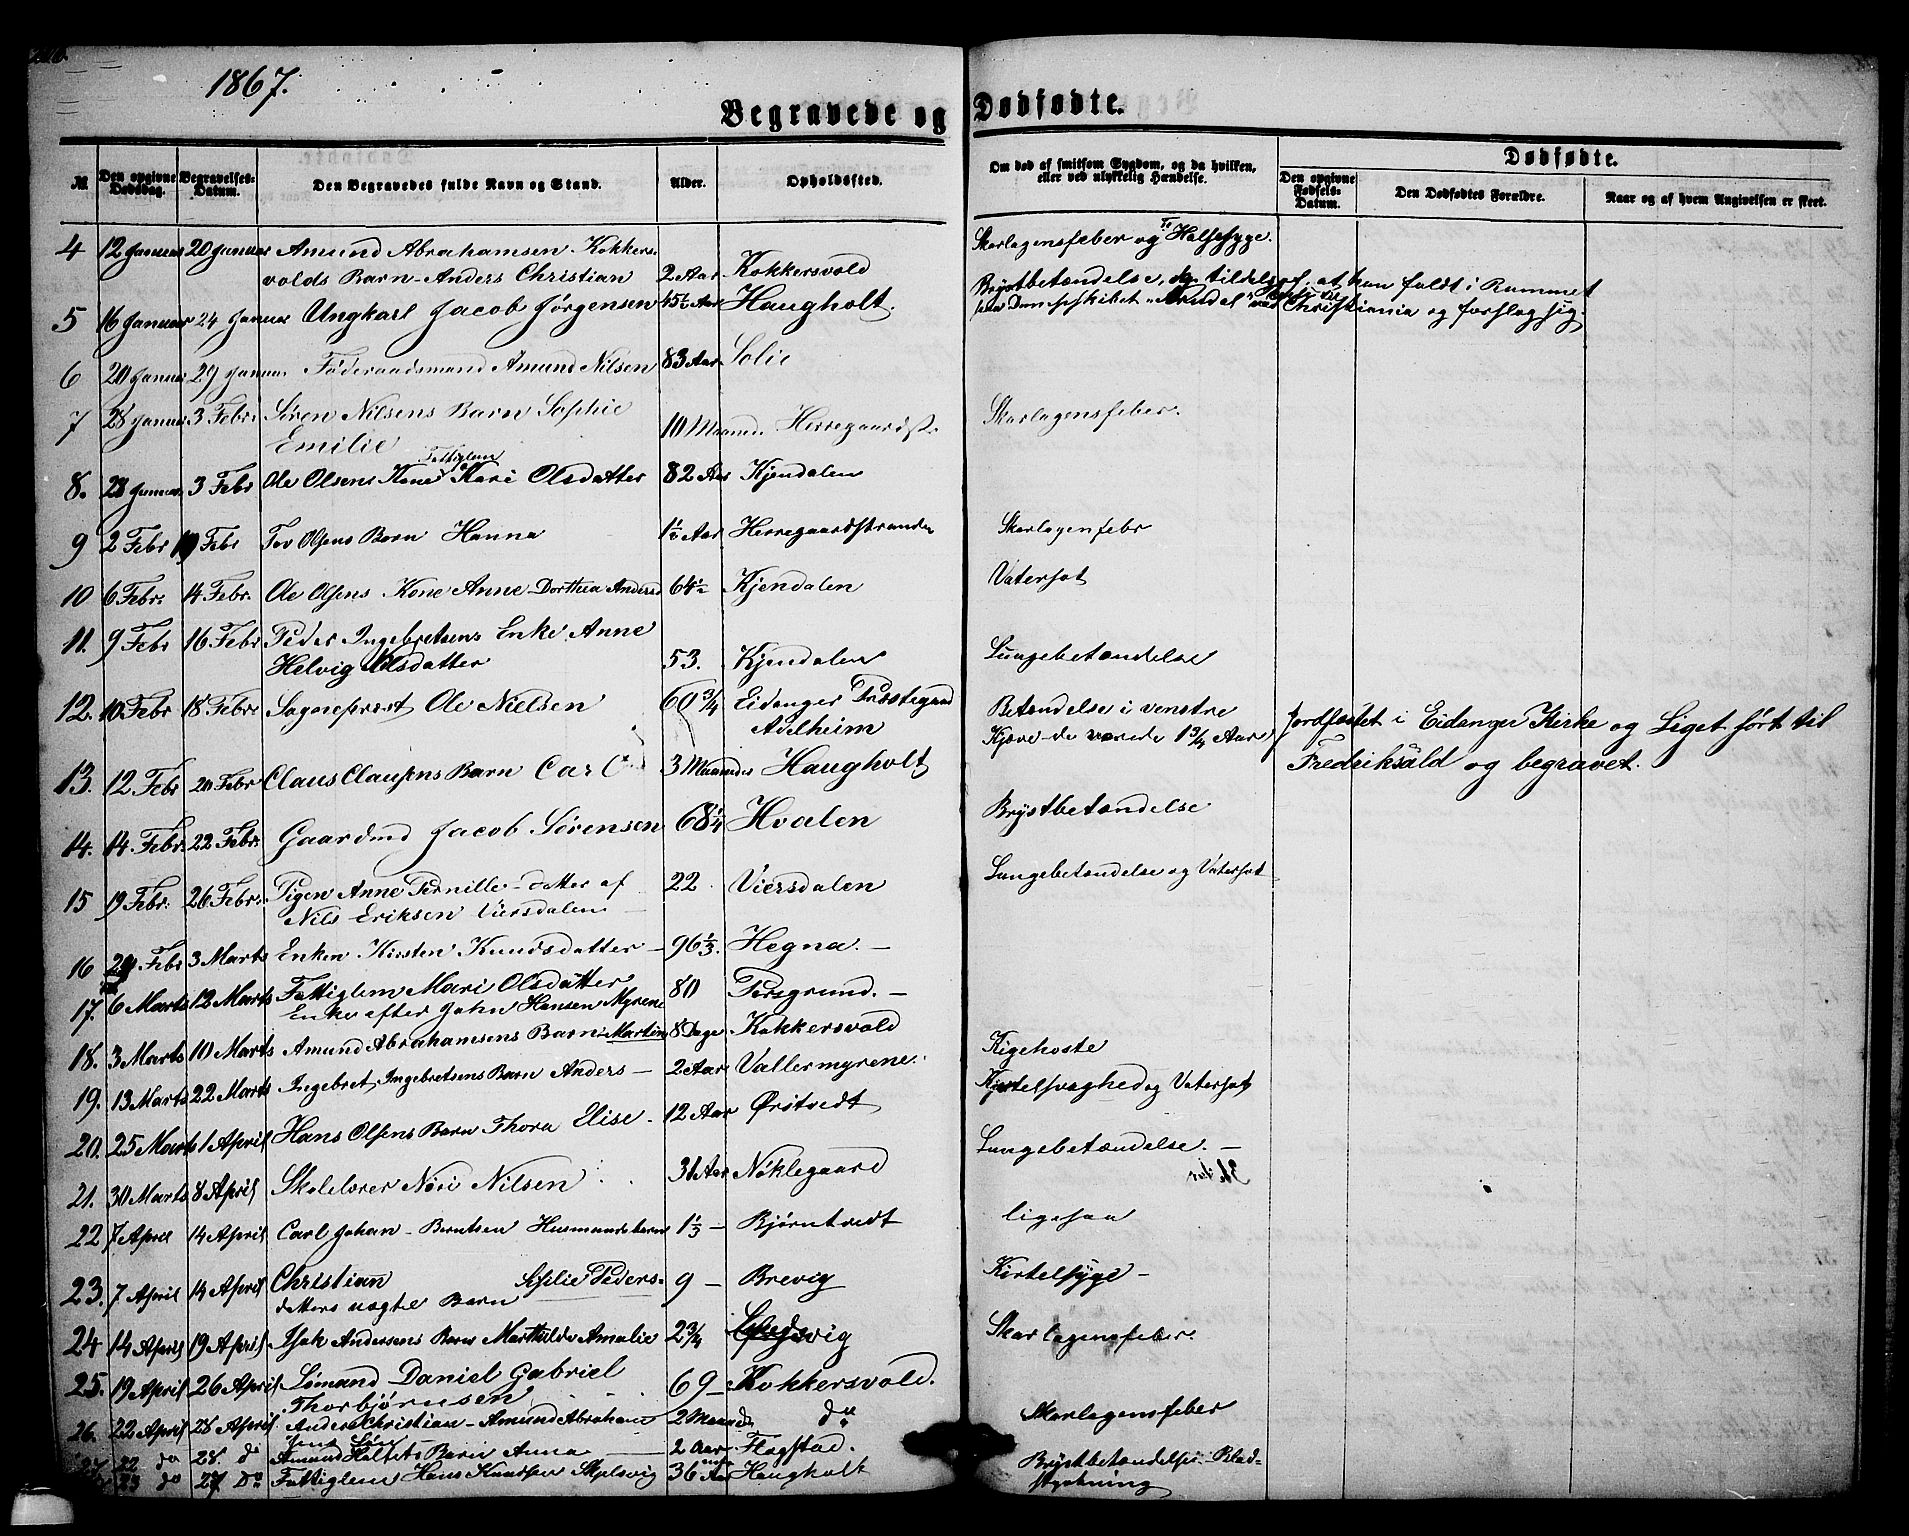 1867.
Begravede og Dødfødte.
№
Den opgivne Dødsdag.
Begravelses-Datum.
Den Begravedes fulde Navn og Stand.
Alder.
Opholdssted.
Om død af smitsom Sygdom, og da hvilken, eller ved ulykkelig Hændelse.
Dødfødte.
Den opgivne Fødsels-Datum.
Den Dødfødtes Forældre.
Naar og af hvem Angivelsen er skeet.
4 12 Januar 20 Januar Amund Abrahamsen Kokkers-
volds Barn Anders Christian 2 Aar Kokkersvold Skarlagensfeber og Halssyge.
5 16 Januar 24 Januar Ungkarl Jacob Jørgensen 45½ Aar Haugholt. Brystbetændelse, tildels af, at han faldt i Rummet
paa Dampskibet "Arendal" Christiania og forslog sig.
6 20 Januar 29 Januar Føderaadsmand Amund Nilsen 83 Aar Solie
7 28 Januar 3 Febr. Søren Nilsens Barn Sophie
Emilie 10 Maaned. Herregaardst. Skarlagensfeber.
8. 28 Januar 3 Febr Ole Olsens Kone Fattiglem Kari Olsdatter 82 Aar Kjendalen
9 2 Febr 19 Febr Tov Olsens Barn Hanna 1½ Aar Herregaardstranden Skarlagensfebr
10 6 Febr. 14 Febr. Ole Olsens Kone Anne Dorthea Andersd 64½ Kjendalen Vatersot
11. 9 Febr 16 Febr Peder Ingebretsens Enke Anne
Helvig Nilsdatter 53. Kjendalen Lungebetændelse
12. 10 Febr 18 Febr Sogneprest Ole Nielsen 60 3/4 Eidanger Præstegaard
Adelheim Betændelse i venstre
Knæ de varede 1 3/4 Aar Jordfæstet i Eidanger Kirke og Liget ført til
Fredrikshald og begravet.
13. 12 Febr 20 Febr Claus Clausens Barn Carl 3 Maaneder Haugholt
14. 14 Febr. 22 Febr. Gaardmd Jacob Sørensen 68¼ Hvalen Brystbetændelse
15 19 Febr. 26 Febr. Pigen Anne Pernille datter af
Nils Eriksen Viersdalen 22 Viersdalen Lungebetændelse og Vatersot
16 24 Febr 3 Marts Enken Kirsten Knudsdatter 96⅓. Hegna. —
17. 6 Marts 12 Marts Fattiglem Mari Olsdatter
Enke efter John Hansen Myrene 80 Porsgrund. —
18. 3 Marts 10 Marts Amund Abrahamsens Barn Martin 8 Dage Kokkersvold Kigehoste
19. 13 Marts 22 Marts Ingebret Ingebretsens Barn Anders — 2 Aar Vallermyrene. Kjertelsvaghed og Vatersot
20. 25 Marts 1 April Hans Olsens Barn Thora Elise. 12 Aar Ørstvedt Lungebetændelse. —
21. 30 Marts 8 April Skolelærer Nils Nilsen 31 Aar Nøklegaard
22 7 April 14 April Carl Johan Berntsen Husmandsbarn 1⅓ — Bjørntvedt ligesaa
23. 7 April 14 April Christian Sofilie Peders-
datters uægte Barn 9 — Brevig Kirtelsyge —
24 14 April 19 April Isak Andersens Barn Marthilde Amalie 2 3/4 Skarlagensfeber.
25. 19 April 26 April Lømand Daniel Gabriel
Thorbjørnsen 69 — Kokkersvold.
26. 22 April 28 April Anders Christian Amund Abraham 2 Maaneder do Skarlagensfeber
27 22 do 28. do Amund Holtets Barn Anna 2 Aar Flogstad.
23 do 27 do Fattiglem Hans Knudsen Skjelsvig 36 Aar Haugholt Brystbetændelse Blod-
styrtning